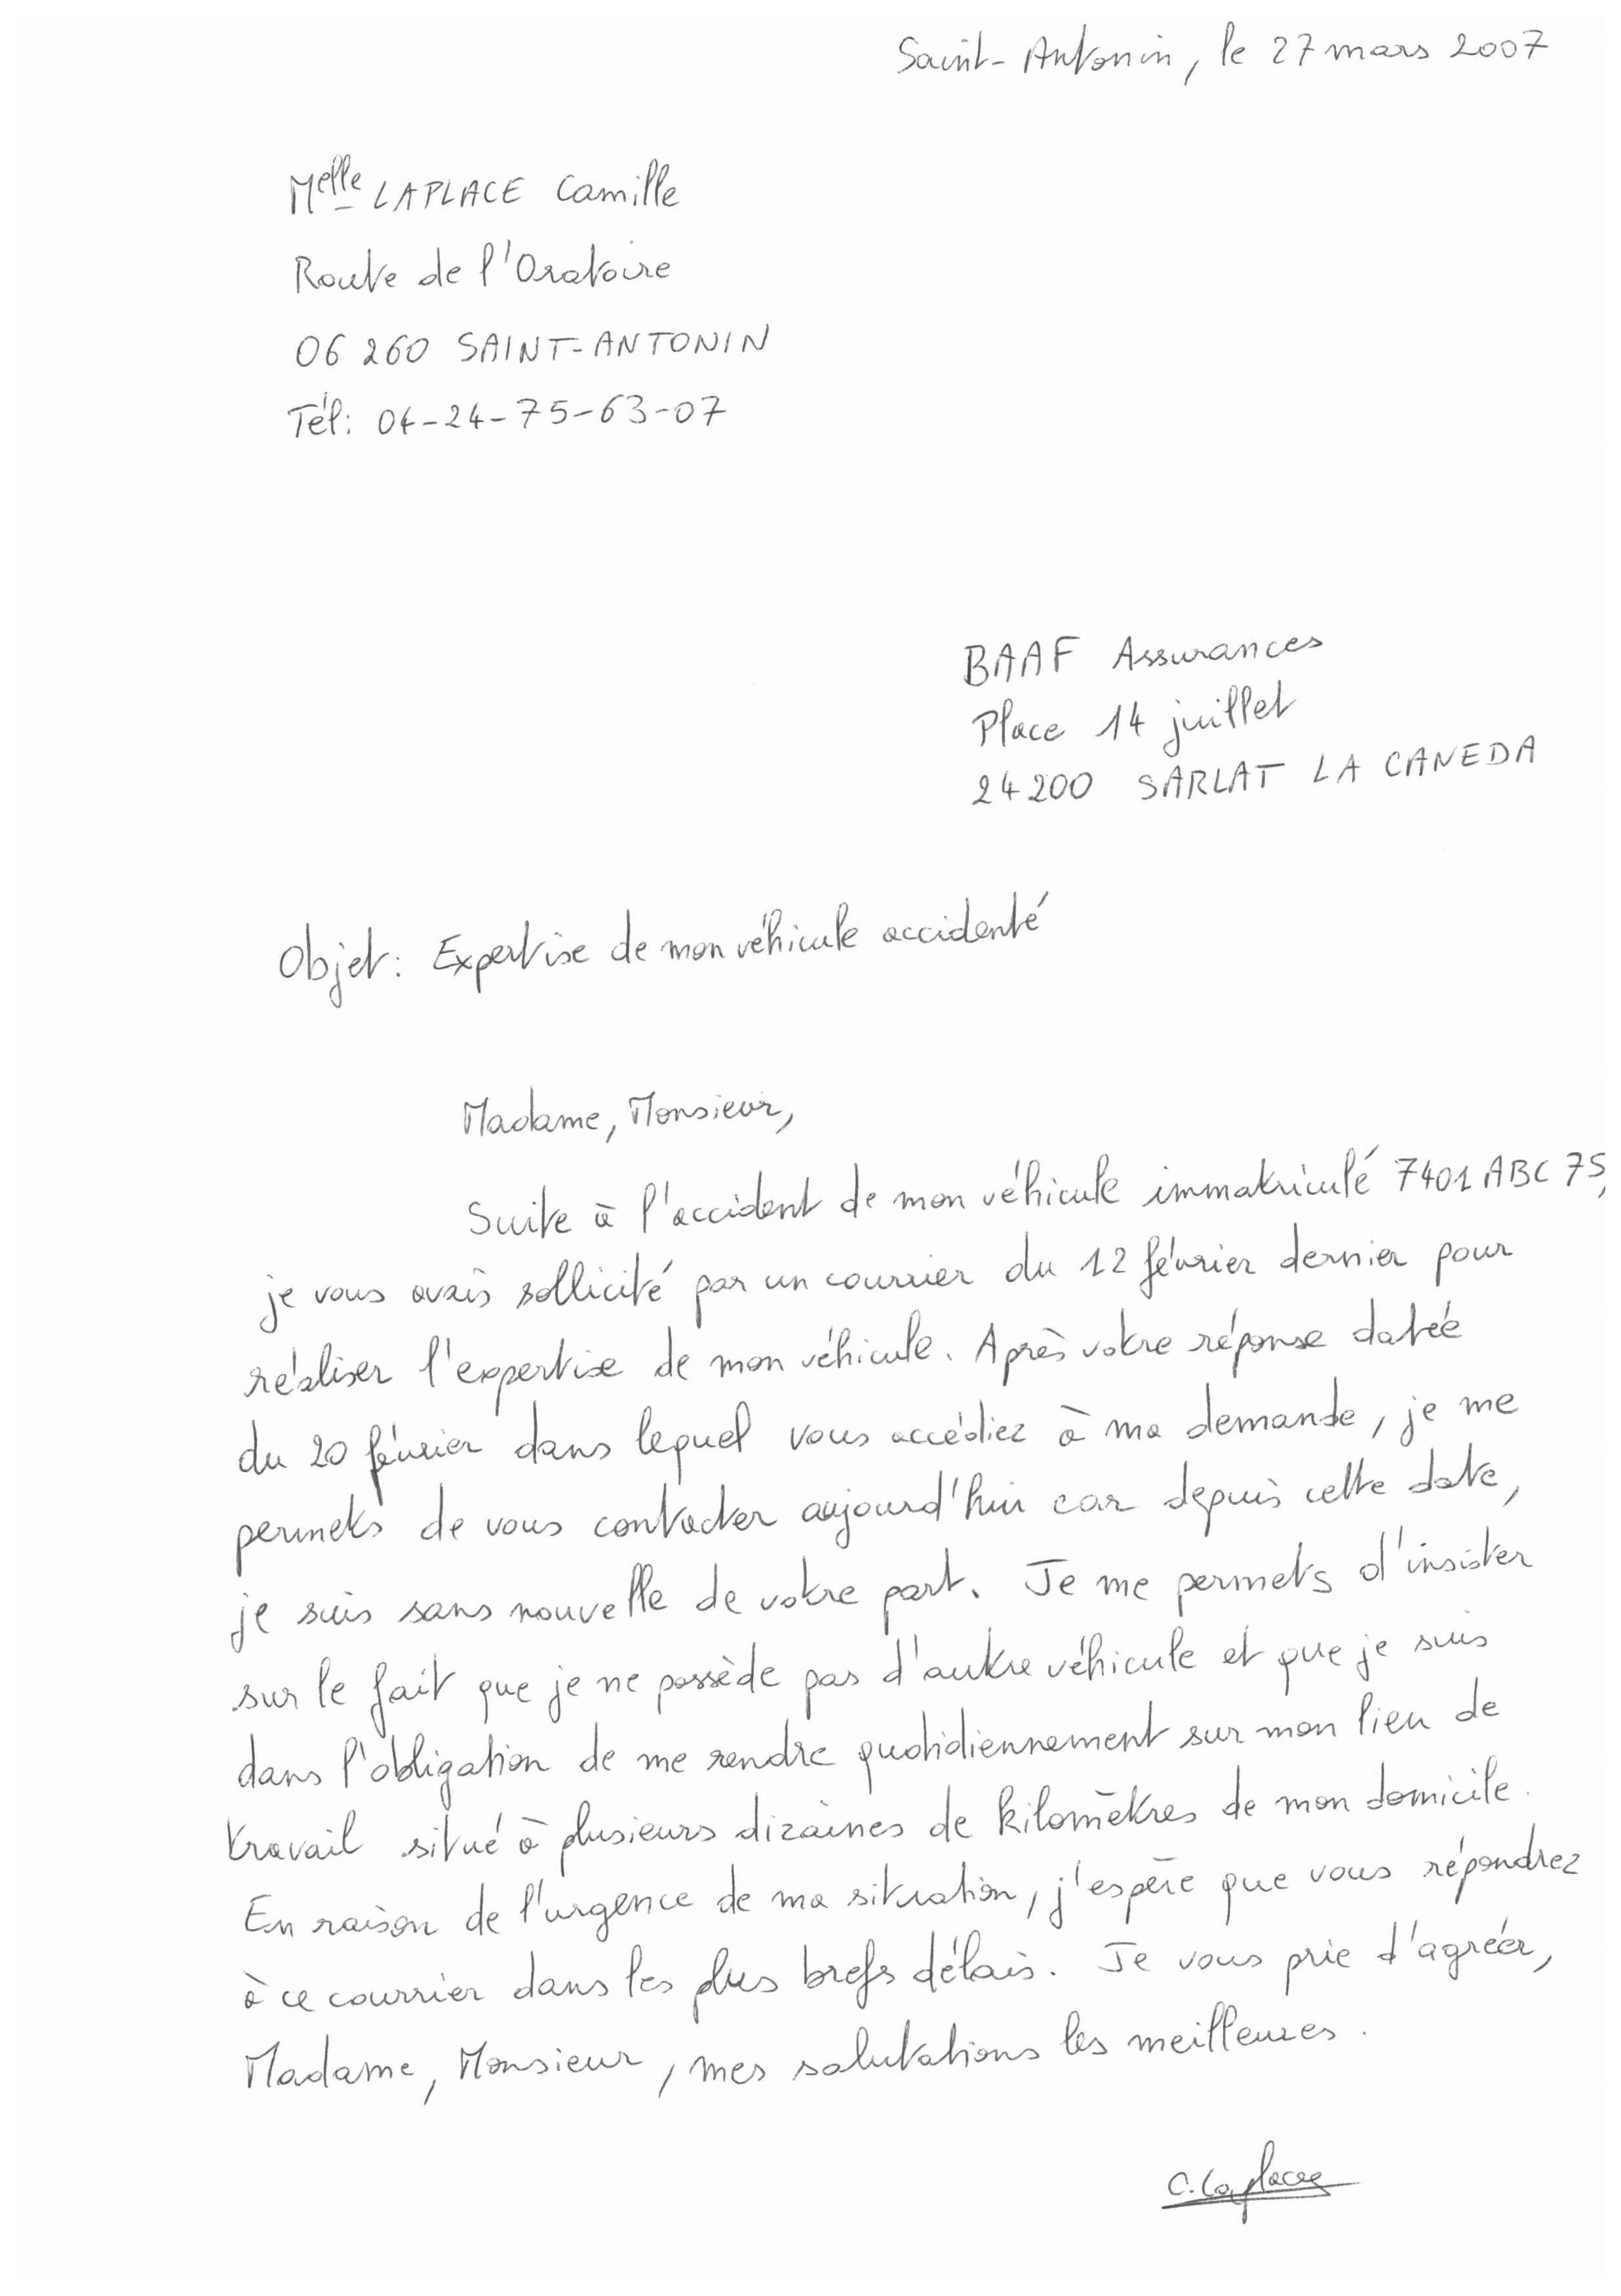 Saint-Antonin, le 27 mars 2007
Melle LAPLACE Camille
Route de l'Oratoire
06 260 SAINT-ANTONIN
Tél: 04-24-75-63-07
BAAF Assurances
Place 14 juillet
24200 SARLAT LA CANEDA
Objet: Expertise de mon véhicule accidenté
Madame, Monsieur,
Suite à l'accident de mon véhicule immatriculé 7401 ABC 75,
je vous avais sollicité par un courrier du 12 février dernier pour
réaliser l'expertise de mon véhicule. Après votre réponse datée
du 20 février dans lequel vous accédiez à ma demande, je me
permets de vous contacter aujourd'hui car depuis cette date,
je suis sans nouvelle de votre part. Je me permets d'insister
sur le fait que je ne possède pas d'autre véhicule et que je suis
dans l'obligation de me rendre quotidiennement sur mon lieu de
travail situé à plusieurs dizaines de kilomètres de mon domicile.
En raison de l'urgence de ma situation, j'espère que vous répondrez
à ce courrier dans les plus brefs délais. Je vous prie d'agréer,
Madame, Monsieur, mes salutations les meilleures.
C. Laplace